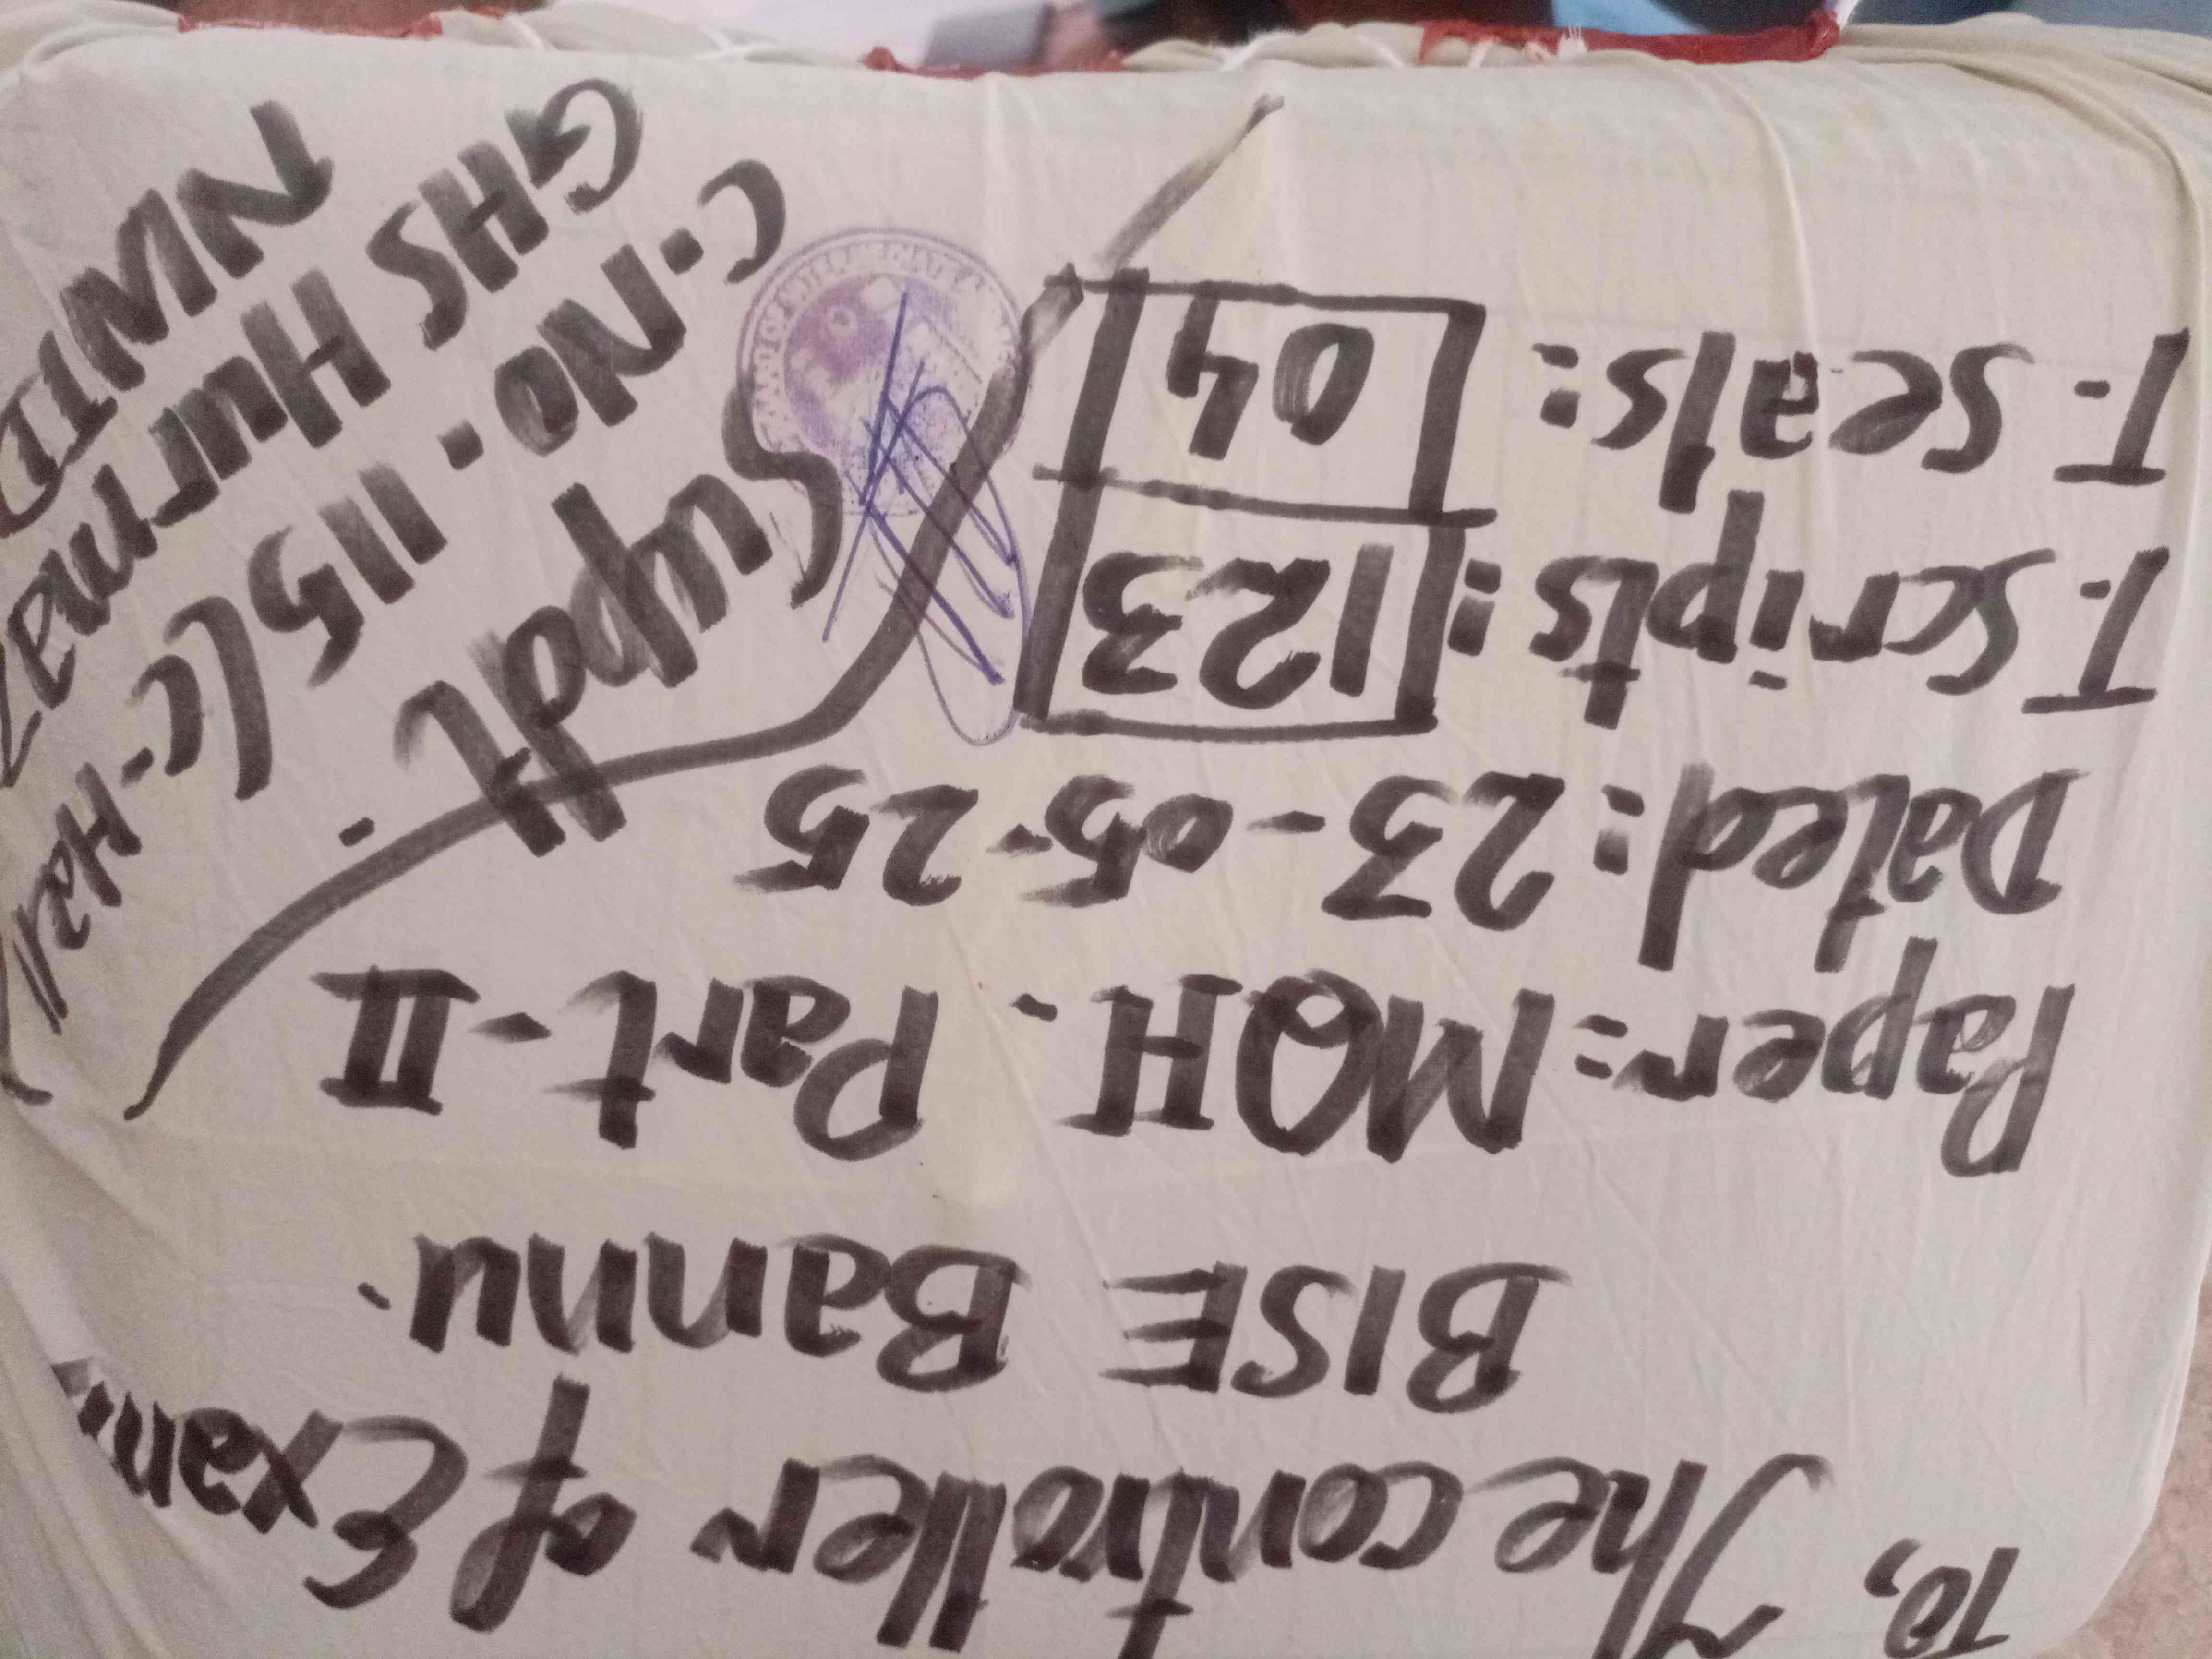 To,
The controller of Exam
BISE Bannu.
Paper: MQH. Part-II
Dated: 23-05-25
T. Scripts: 123
T. Seals: 04
Supdt
C.No. 115/C-Hall
GHS Hurmaz
NWTD